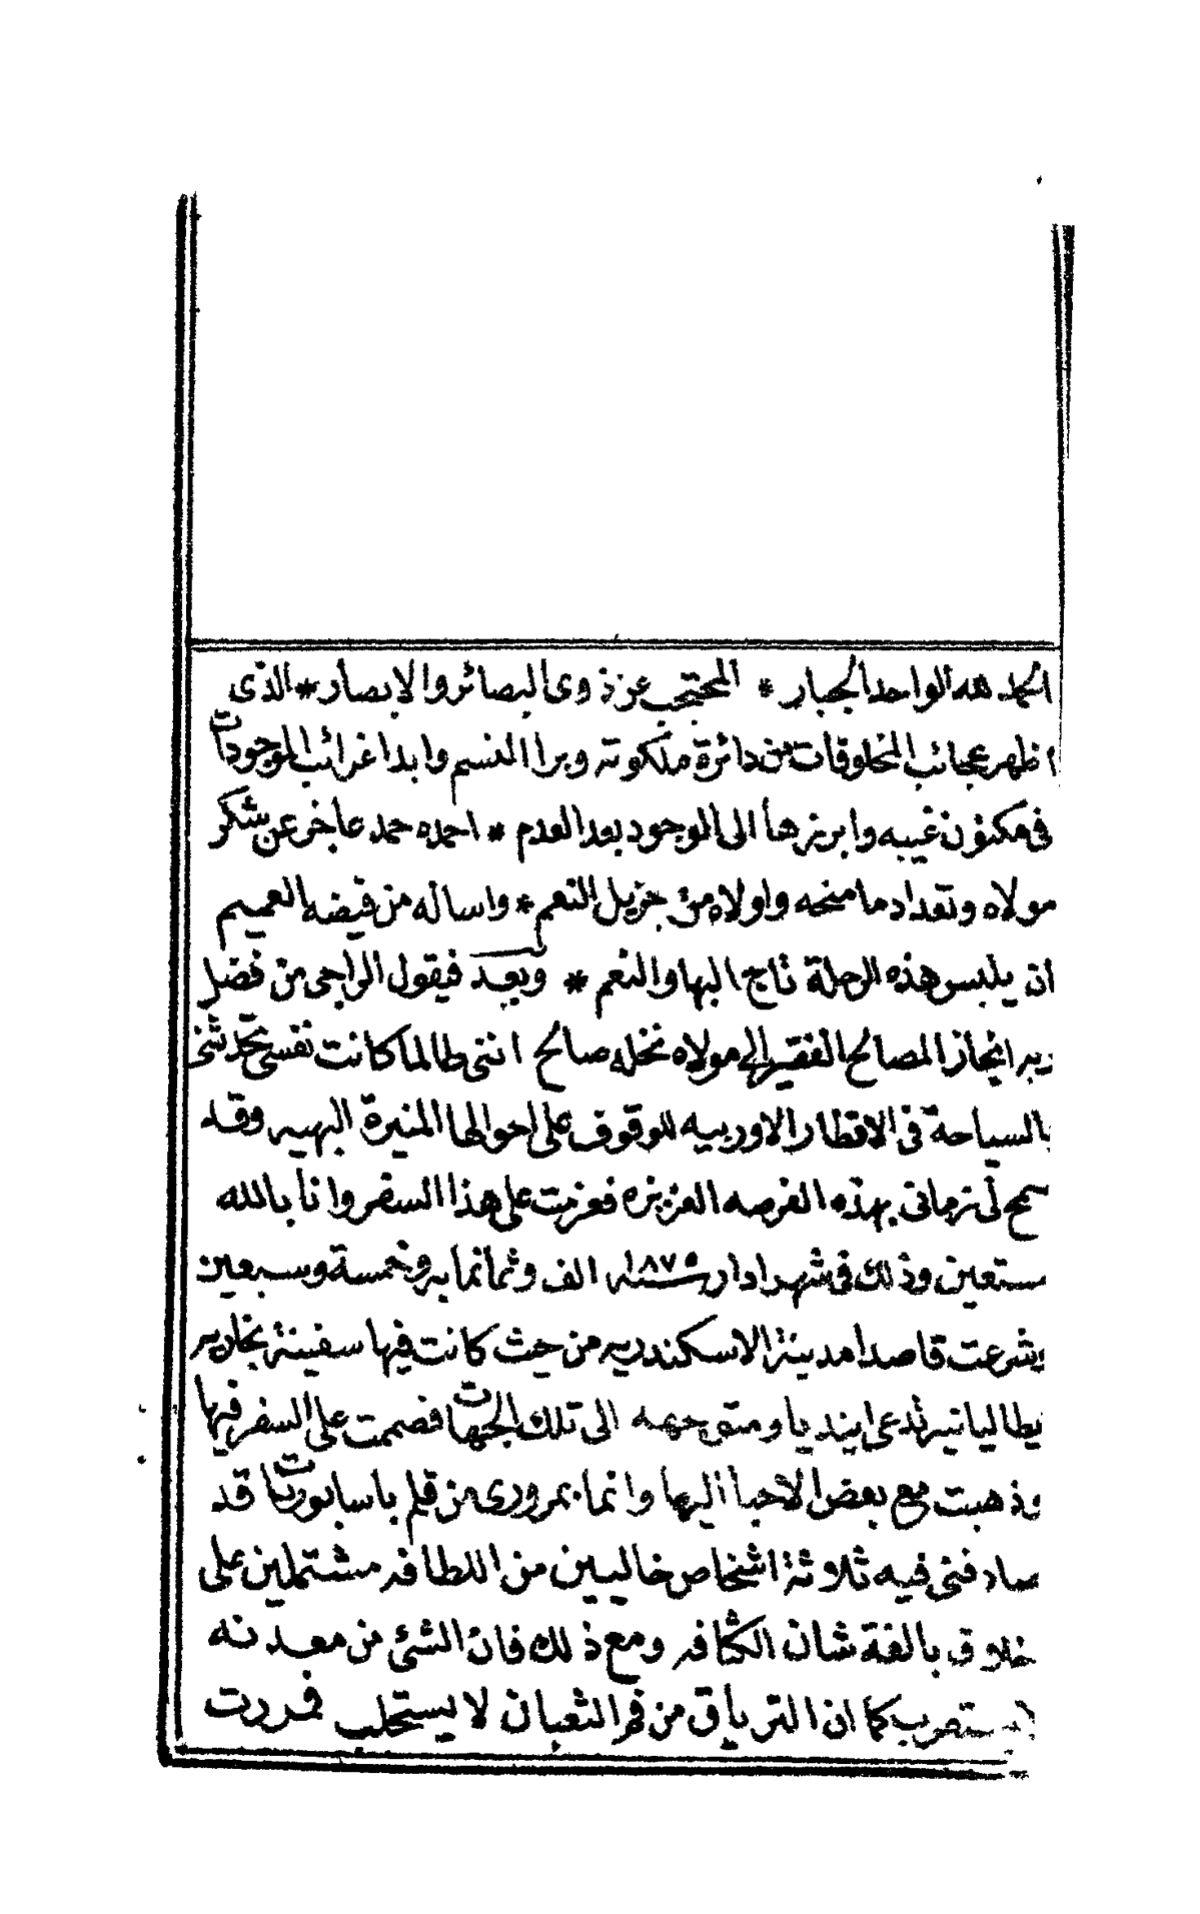 الحمد لله الواحد الجبار * المحتجب عن ذوى البصائر والابصار * الذى
اظهر عجائب المخلوقات من دائرة ملكوته وبرا النسم وابدا غرائب الموجودات
فى مكنون غيبه وابرزها الى الوجود بعد العدم * احمده حمد عاجز عن شكر
مولاه وتعداد ما منحه واولاه من جزيل النعم * واساله من فيضه العميم
ان يلبس هذه الرحلة تاج البها والنعم * وبعد فيقول الراجى من فضل
ربه انجاز المصالح الفقير الى مولاه نخله صالح اننى طالما كانت نفسى تحدثنى
بالسياحة فى الاقطار الاوربيه للوقوف على احوالها المنيرة البهيه وقد
سمح لى زمانى بهذه الفرصه العزيزه فعزمت على هذا السفر وانا بالله
مستعين وذلك فى شهر ادار سنه ١٨٧٥ الف وثمانمايه وخمسة وسبعين
وشرعت قاصدا مدينة الاسكندريه من حيث كانت فيها سفينة بخاريه
يطاليانيه تدعى اينديا ومتوجهه الى تلك الجهات فصممت على السفر فيها
وذهبت مع بعض الاحبا اليها وانما بمرورى من قلم باسابورتات قد
صادفنى فيه ثلاثة اشخاص خاليين من اللطافه مشتملين على
خلاق بالغة شان الكثافه ومع ذلك فان الشئ من معدنه
لا يستغرب كما ان الترياق من فم الثعبان لا يستحلب فمررت